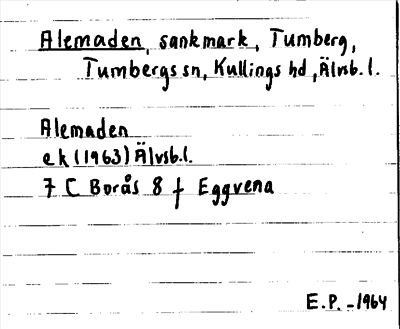 Alemaden, sankmark, Tumberg,
Tumbergs sn, Kullings hd, Älvsb. l.
Alemaden
ek (1963) Älvsb. l.
7 C Borås 8 f Eggvena
E. P. -1964